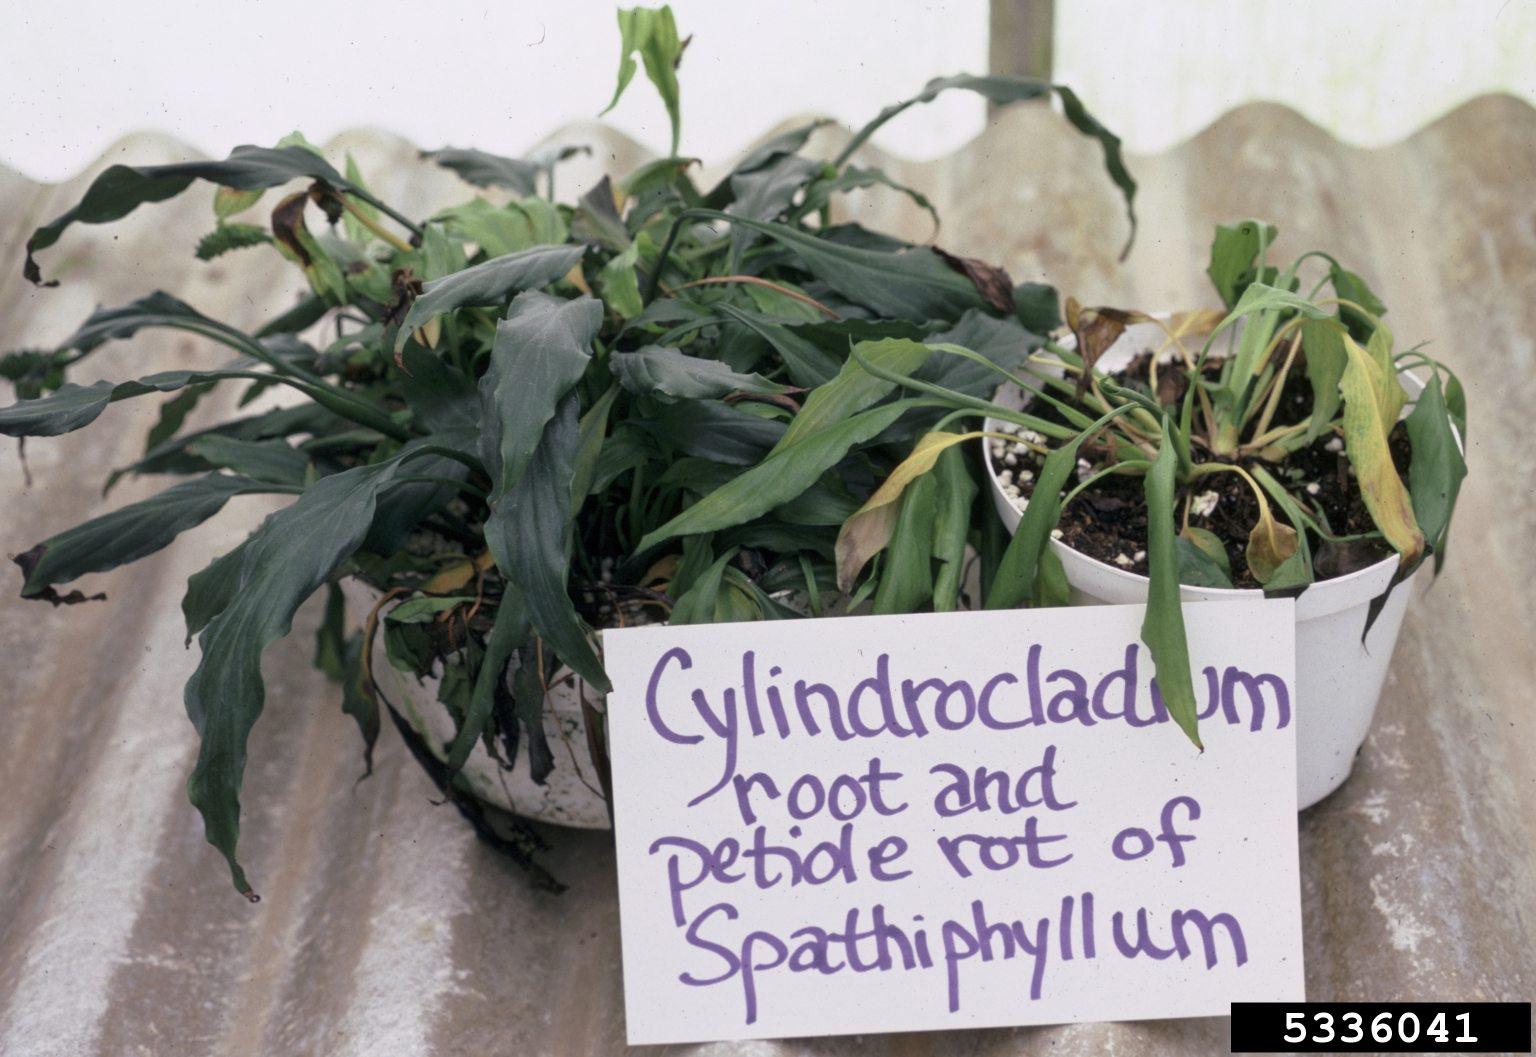 Cylindrocladium
root and
petiole rot of
Spathiphyllum
5336041